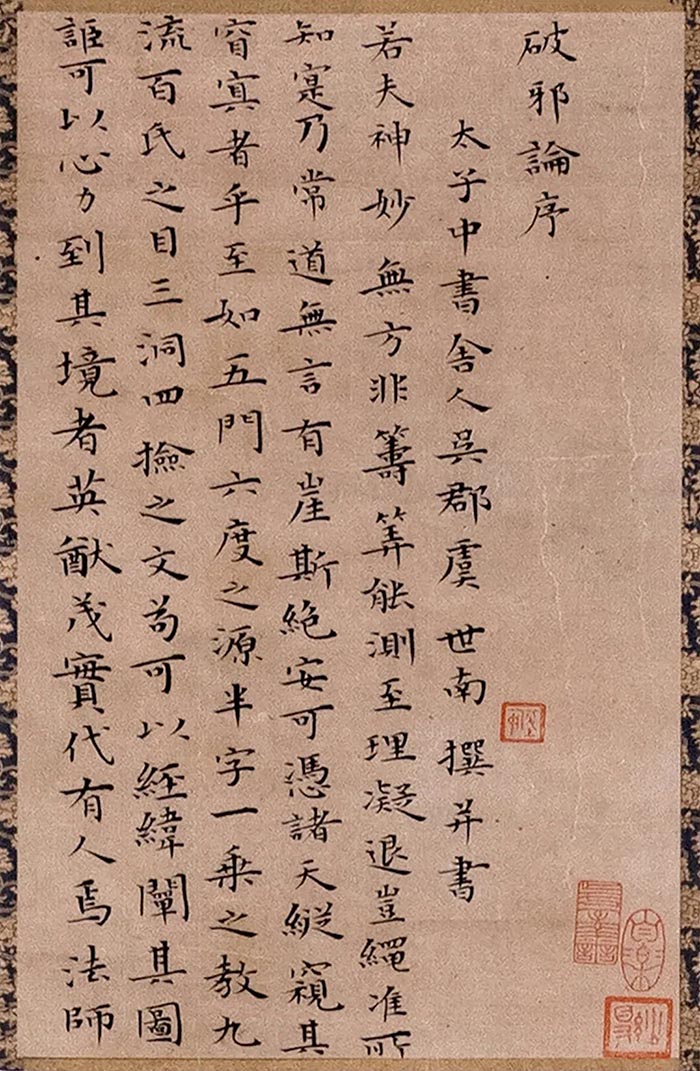 破邪論序
太子中書舍人吳郡虞世南撰并書
若夫神妙無方非籌筭能測至理凝退豈繩准所
知寔乃常道無言有崖斯絕安可憑諸天縱窺其
窅寘者乎至如五門六度之源半字一乘之教九
流百氏之目三洞四撿之文苟可以經緯闡其圖
詎可以心力到其境者英猷茂實代有人焉法師